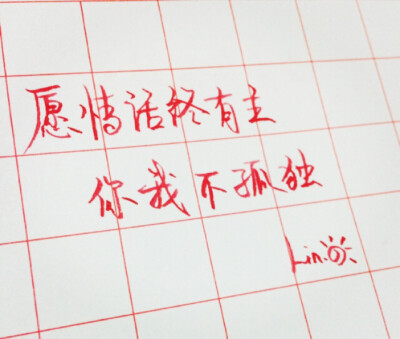 愿情话终有主
你我不孤独
Lin.